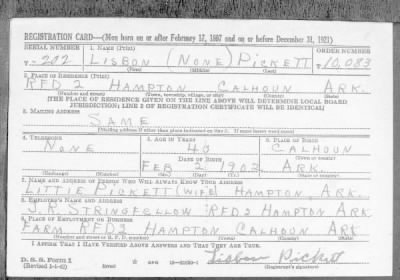 REGISTRATION CARD—(Men born on or after February 17, 1897 and on or before December 31, 1921)
SERIAL NUMBER 1. NAME (Print) ORDER NUMBER
T-202 LISBON (NONE) PICKETT 10,083
(First) (Middle) (Last)
2. PLACE OF RESIDENCE (Print)
RFD 2 HAMPTON CALHOUN ARK.
(Number and street) (Town, township, village, or city) (County) (State)
[THE PLACE OF RESIDENCE GIVEN ON THE LINE ABOVE WILL DETERMINE LOCAL BOARD
JURISDICTION; LINE 2 OF REGISTRATION CERTIFICATE WILL BE IDENTICAL]
3. MAILING ADDRESS
SAME
[Mailing address if other than place indicated on line 2. If same insert word same]
4. TELEPHONE 5. AGE IN YEARS 6. PLACE OF BIRTH
NONE 40 CALHOUN
DATE OF BIRTH (Town or county)
FEB 2 1902 ARK.
(Mo.) (Day) (Yr.) (State or country)
7. NAME AND ADDRESS OF PERSON WHO WILL ALWAYS KNOW YOUR ADDRESS
LITTIE PICKETT (WIFE) HAMPTON, ARK.
8. EMPLOYER'S NAME AND ADDRESS
J. R. STRINGFELLOW RFD 2 HAMPTON ARK.
9. PLACE OF EMPLOYMENT OR BUSINESS
FARM RFD 2 HAMPTON CALHOUN ARK
(Number and street or R. F. D. number) (Town) (County) (State)
I AFFIRM THAT I HAVE VERIFIED ABOVE ANSWERS AND THAT THEY ARE TRUE.
D. S. S. Form 1 Lisbon Pickett
(Registrant's signature)